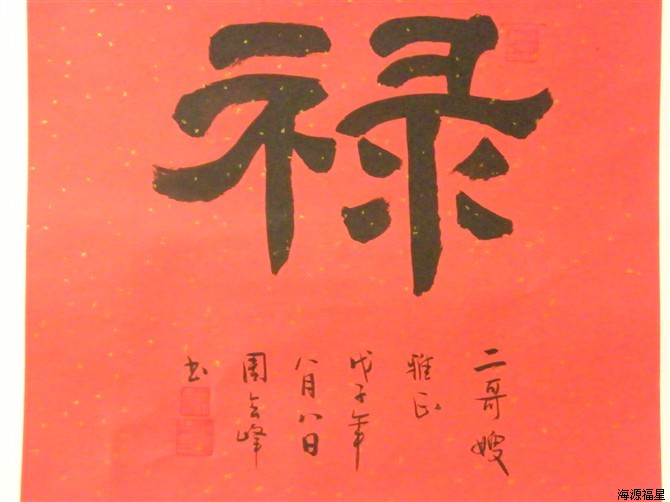 禄
二哥嫂
雅正
戊子年
八月八日
周会峰
书
海源福星